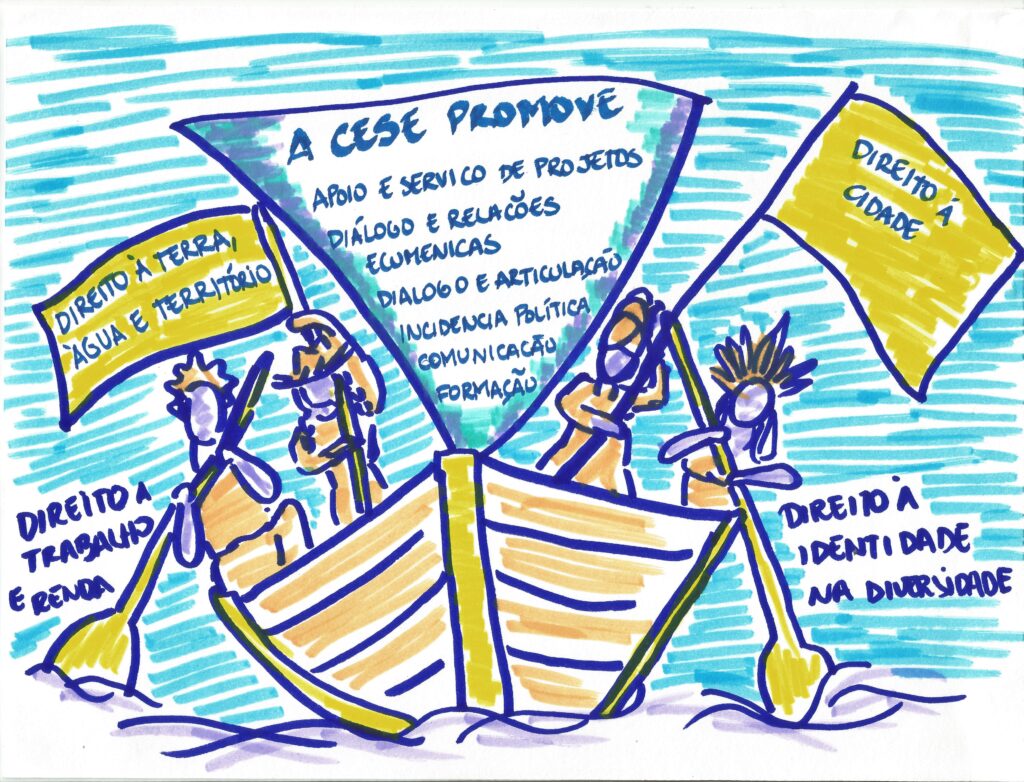 A CESE PROMOVE
APOIO E SERVICO DE PROJETOS
DIÁLOGO E RELACÕES
ECUMENICAS
DIALOGO E ARTICULAÇÃO
INCIDENCIA POLÍTICA
COMUNICAÇÃO
FORMAÇÃO
DIREITO À TERRA,
ÀGUA E TERRITÓRIO
DIREITO À
CIDADE
DIREITO A
TRABALHO
E RENDA
DIREITO À
IDENTIDADE
NA DIVERSIDADE